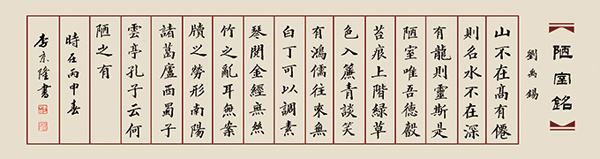 陋室銘
劉禹錫
山不在高有僊
則名水不在深
有龍則靈斯是
陋室唯吾德馨
苔痕上階綠草
色入簾青談笑
有鴻儒往來無
白丁可以調素
琴閱金經無絲
竹之亂耳無案
牘之勞形南陽
諸葛廬西蜀子
雲亭孔子云何
陋之有
時在丙申春
李京隆書